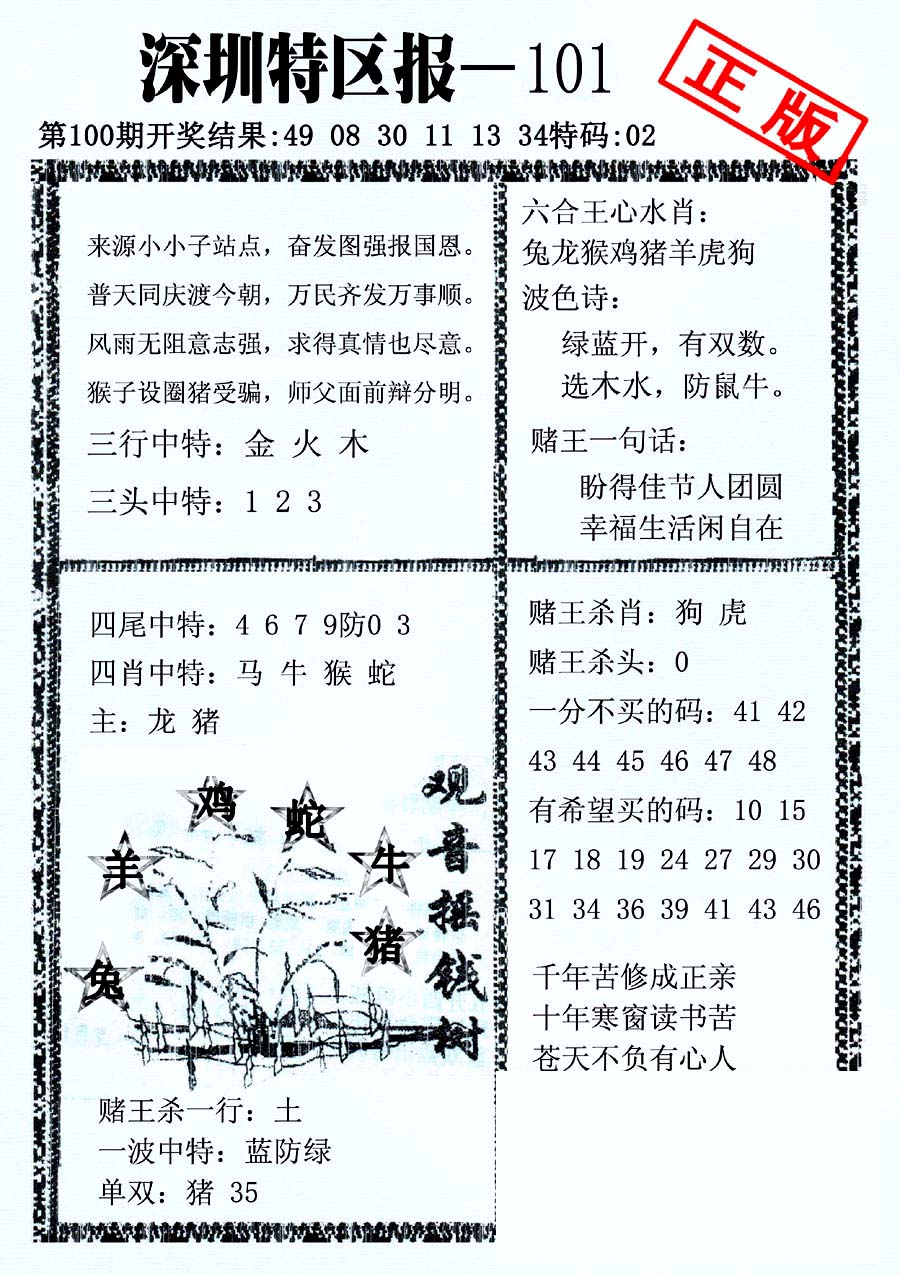 深圳特区报—101
正版
第100期开奖结果:49 08 30 11 13 34特码:02
来源小小子站点，奋发图强报国恩。
普天同庆渡今朝，万民齐发万事顺。
风雨无阻意志强，求得真情也尽意。
猴子设圈猪受骗，师父面前辩分明。
三行中特：金 火 木
三头中特：1 2 3
六合王心水肖：
兔龙猴鸡猪羊虎狗
波色诗：
绿蓝开，有双数。
选木水，防鼠牛。
赌王一句话：
盼得佳节人团圆
幸福生活闲自在
四尾中特：4 6 7 9防0 3
四肖中特：马 牛 猴 蛇
主：龙 猪
鸡
蛇
羊
牛
猪
兔
观音摇钱树
赌王杀一行：土
一波中特：蓝防绿
单双：猪 35
赌王杀肖：狗 虎
赌王杀头：0
一分不买的码：41 42
43 44 45 46 47 48
有希望买的码：10 15
17 18 19 24 27 29 30
31 34 36 39 41 43 46
千年苦修成正亲
十年寒窗读书苦
苍天不负有心人